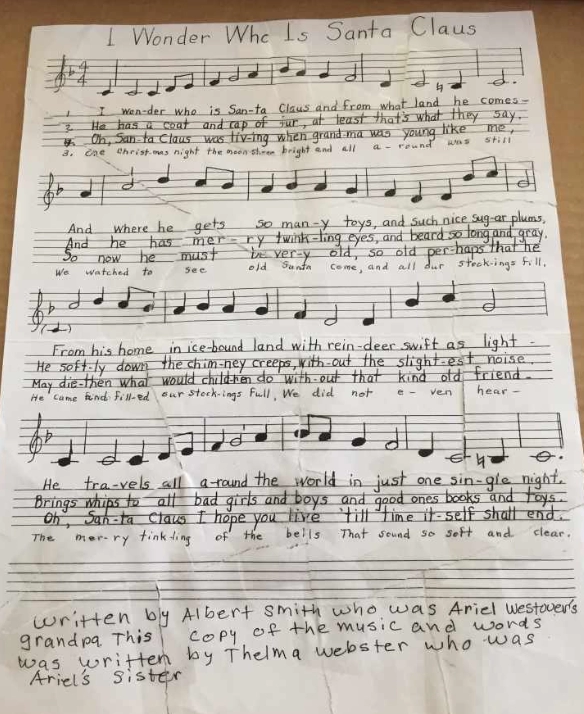 I Wonder Who Is Santa Claus
4
4
1. I won-der who is San-ta Claus and from what land he comes-
2. He has a coat and cap of fur, at least that's what they say.
4. Oh, San-ta Claus was liv-ing when grand-ma was young like me,
3. One Christ-mas night the moon shone bright and all a-round was still
And where he gets so man-y toys, and such nice sug-ar plums,
And he has mer-ry twink-ling eyes, and beard so long and gray.
So now he must be ver-y old, so old per-haps that he
We watched to see old Santa come, and all our stock-ings fill.
From his home in ice-bound land with rein-deer swift as light-
He soft-ly down the chim-ney creeps, with-out the slight-est noise
May die-then what would children do with-out that kind old friend-
He came and fill-ed our stock-ings full, We did not e-ven hear-
He tra-vels all a-round the world in just one sin-gle night.
Brings whips to all bad girls and boys and good ones books and toys.
Oh, San-ta Claus I hope you live 'till time it-self shall end.
The mer-ry tink-ling of the bells That sound so soft and clear.
written by Albert Smith who was Ariel Westover's
grandpa This copy of the music and words
was written by Thelma Webster who was
Ariel's Sister